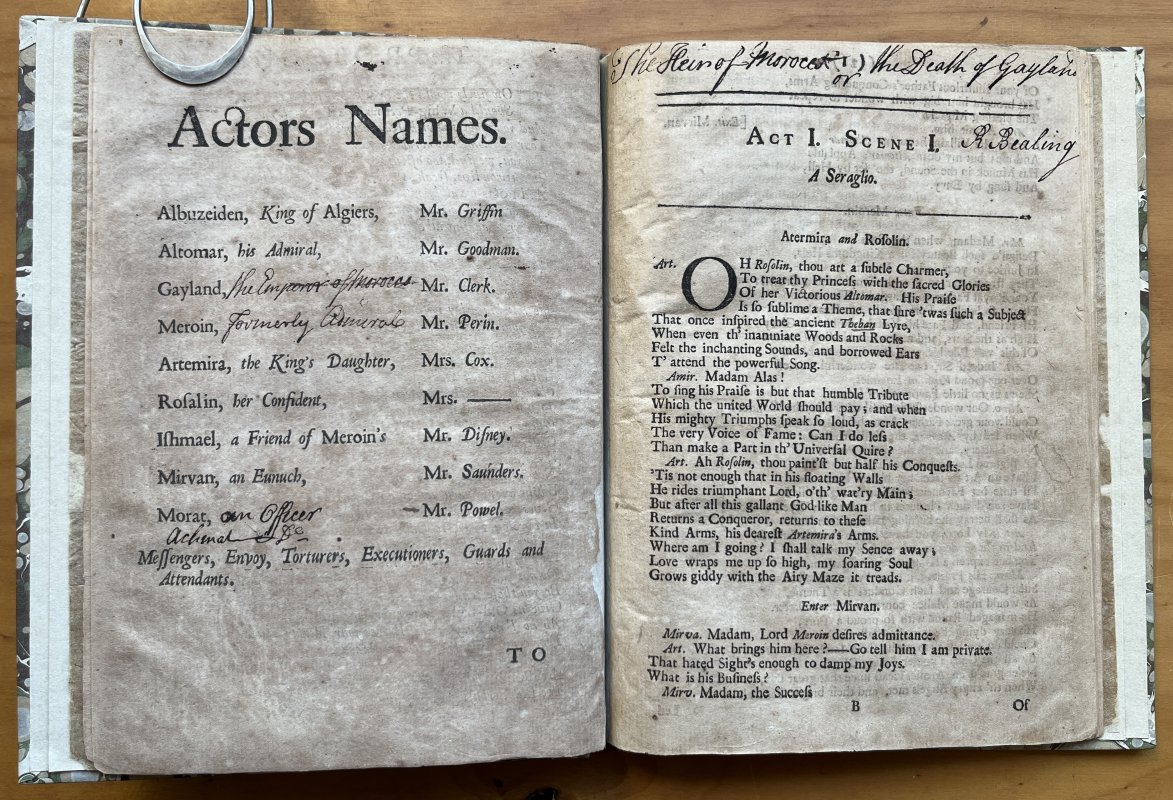 Actors Names.
Albuzeiden, King of Algiers, Mr. Griffin
Altomar, his Admiral, Mr. Goodman.
Gayland, the Emperor of Morocco Mr. Clerk.
Meroin, formerly Admiral Mr. Perin.
Artemira, the King's Daughter, Mrs. Cox.
Rosalin, her Confident, Mrs. ——
Ishmael, a Friend of Meroin's Mr. Disney.
Mirvan, an Eunuch, Mr. Saunders.
Morat, an Officer Mr. Powel.
Achmat &c
Messengers, Envoy, Torturers, Executioners, Guards and
Attendants.
TO
The Heir of Morocco (1) or the Death of Gayland
ACT I. SCENE I. R Bealing
A Seraglio.
Atermira and Roſolin.
Art. OH Roſolin, thou art a ſubtle Charmer,
To treat thy Princeſs with the ſacred Glories
Of her Victorious Altomar. His Praiſe
Is ſo ſublime a Theme, that ſure 'twas ſuch a Subject
That once inſpired the ancient Theban Lyre,
When even th' inanimate Woods and Rocks
Felt the inchanting Sounds, and borrowed Ears
T' attend the powerful Song.
Amir. Madam Alas!
To ſing his Praiſe is but that humble Tribute
Which the united World ſhould pay; and when
His mighty Triumphs ſpeak ſo loud, as crack
The very Voice of Fame: Can I do leſs
Than make a Part in th' Univerſal Quire?
Art. Ah Roſolin, thou paint'ſt but half his Conqueſts.
'Tis not enough that in his floating Walls
He rides triumphant Lord, o'th' wat'ry Main;
But after all this gallant God-like Man
Returns a Conqueror, returns to theſe
Kind Arms, his deareſt Artemira's Arms.
Where am I going? I ſhall talk my Sence away;
Love wraps me up ſo high, my ſoaring Soul
Grows giddy with the Airy Maze it treads.
Enter Mirvan.
Mirva. Madam, Lord Meroin deſires admittance.
Art. What brings him here?—Go tell him I am private.
That hated Sight's enough to damp my Joys.
What is his Buſineſs?
Mirv. Madam, the Succeſs
B Of